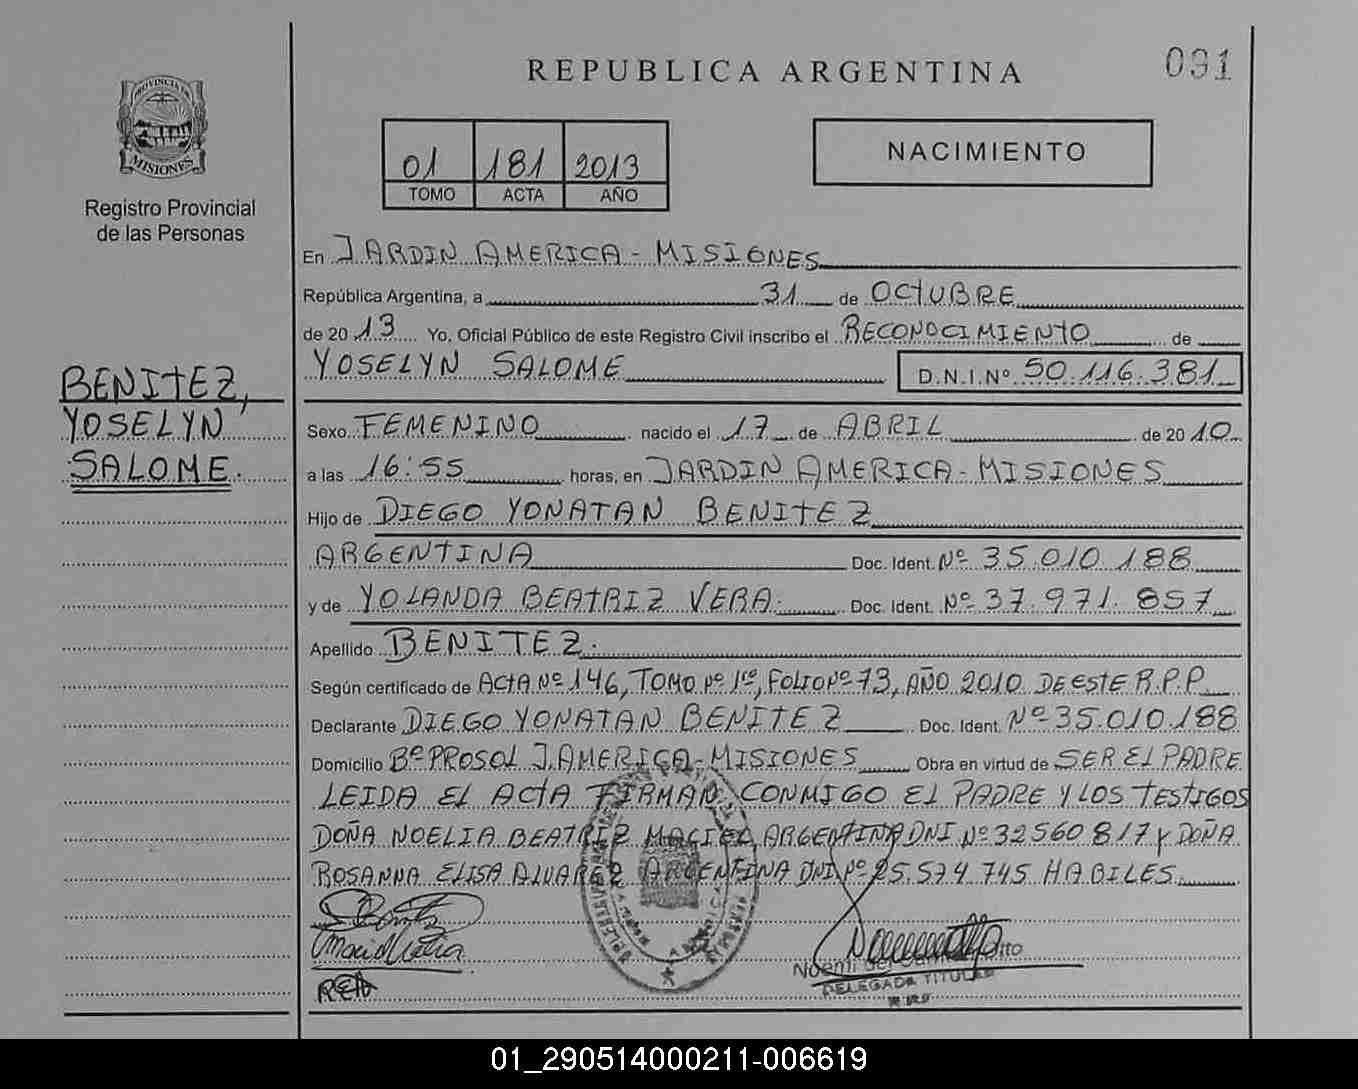 REPUBLICA ARGENTINA
091
PROVINCIA DE
MISIONES
Registro Provincial
de las Personas
01 181 2013
TOMO ACTA AÑO
NACIMIENTO
En JARDIN AMERICA - MISIONES
República Argentina, a 31 de OCTUBRE
de 20 13 Yo, Oficial Público de este Registro Civil inscribo el RECONOCIMIENTO de
YOSELYN SALOME D.N.I.Nº 50.116.381
BENITEZ,
YOSELYN
SALOME.
Sexo FEMENINO nacido el 17 de ABRIL de 20 10
a las 16:55 horas, en JARDIN AMERICA - MISIONES
Hijo de DIEGO YONATAN BENITEZ
ARGENTINA Doc. Ident. Nº 35.010.188
y de YOLANDA BEATRIZ VERA. Doc. Ident. Nº 37.971.857
Apellido BENITEZ.
Según certificado de ACTA Nº 146, TOMO Nº 1º, FOLIO Nº 73, AÑO 2010 DE ESTE R.P.P.
Declarante DIEGO YONATAN BENITEZ Doc. Ident. Nº 35.010.188
Domicilio Bº PROSOL J. AMERICA - MISIONES Obra en virtud de SER EL PADRE
LEIDA EL ACTA FIRMAN CONMIGO EL PADRE Y LOS TESTIGOS
DOÑA NOELIA BEATRIZ MACIEL, ARGENTINA DNI Nº 32560817 Y DOÑA
ROSANNA ELISA ALVAREZ ARGENTINA DNI Nº 25.574.745 HABILES.
Noemi del
DELEGADA TITULAR
01_290514000211-006619